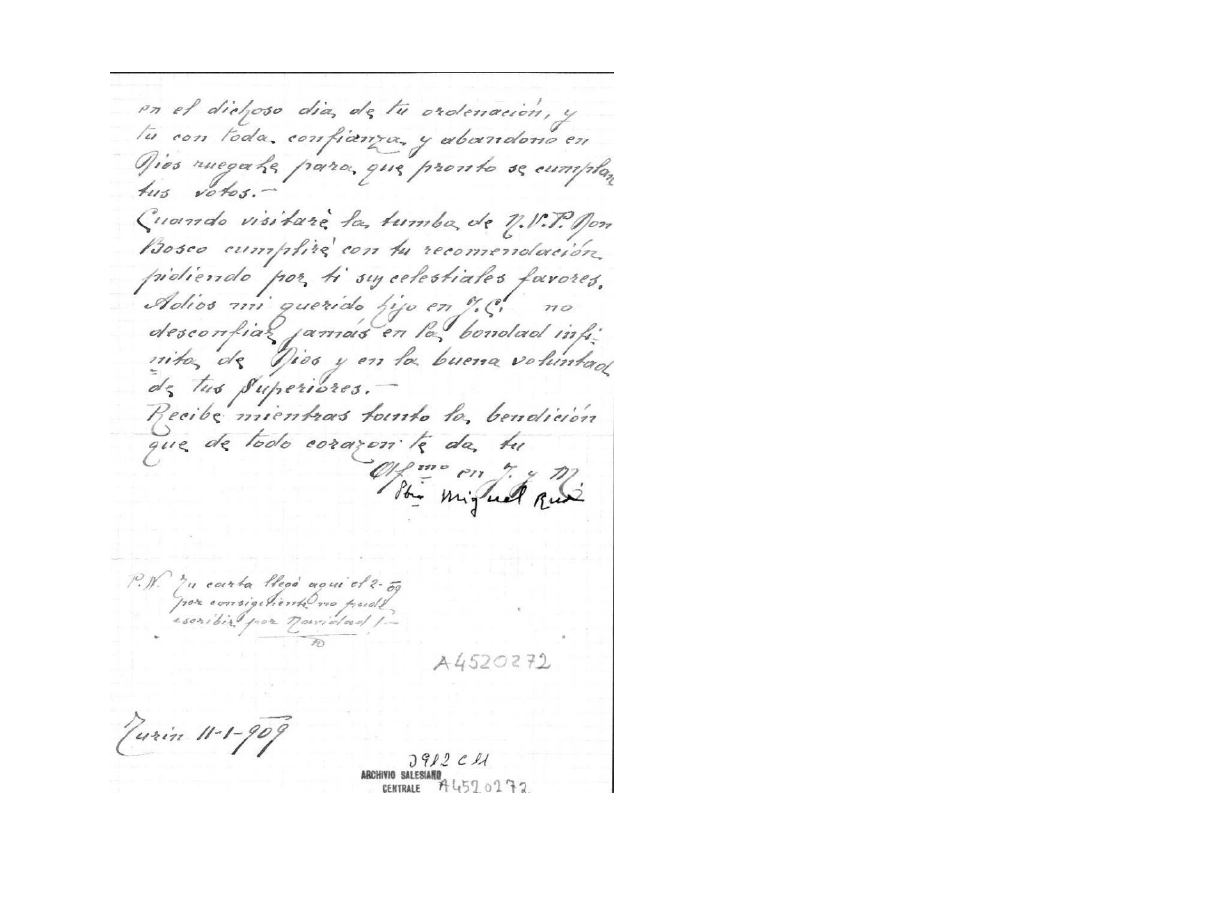 en el dichoso dia de tu ordenación, y
tu con toda confianza y abandono en
Dios ruegale para que pronto se cumplan
tus votos.—
Cuando visitaré la tumba de N.V.P. Don
Bosco cumpliré con tu recomendación
pidiendo por ti sus celestiales favores.
Adios mi querido hijo en J.C. no
desconfiar jamás en la bondad infi-
nita de Dios y en la buena voluntad
de tus Superiores.—
Recibe mientras tanto la bendición
que de todo corazon te da tu
Aff.mo en J. y M.
Pbro Miguel Rua
P.N. Tu carta llegó aqui el 2-09
por consiguiente no pude
escribir por Navidad!—
A4520272
Turin 11-1-909
ARCHIVIO SALESIANO
CENTRALE A4520272